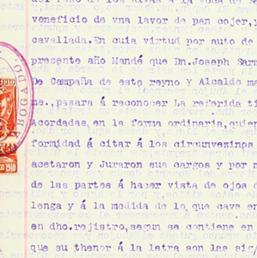 veneficio de vna lavor de pan cojer,
cavallada. En cuia virtud por auto de
presente año Mandé que Dn. Joseph Sarm
De Campaña de este reyno y Alcalde ma
me., pasara á reconocer La referida ti
acordadas, en la forma ordinaria, quien
formidad á citar á los circunveninos
acetaron y Juraron sus cargos y por m
de las partes á hacer vista de ojos d
lenga y á la medida de lo que cave en
en dho. rejistro, segun se contiene en
que su thenor á la letra son las sig/
ABOGADO